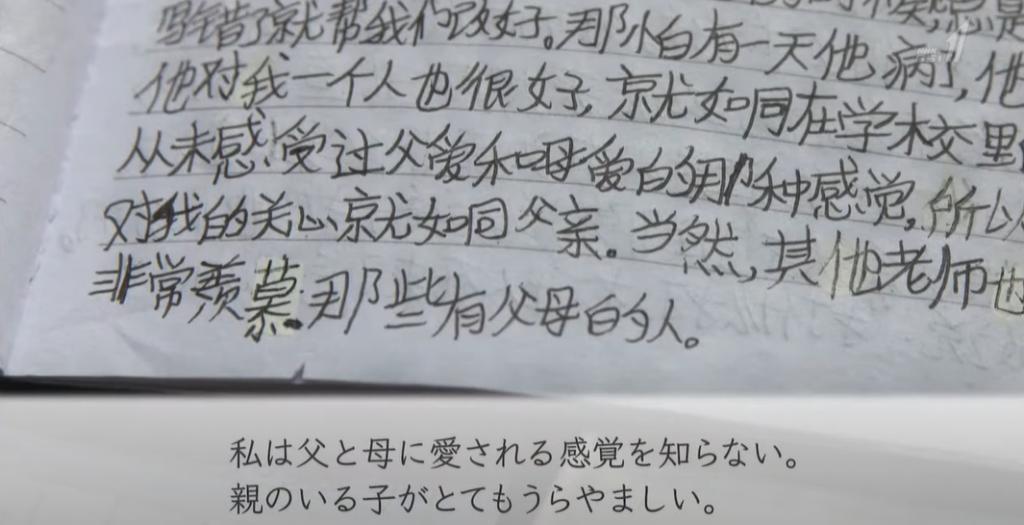 错了就帮我们改好。那小白有一天他病了，他
他对我一个人也很好，就如同在学校里
从未感受过父爱和母爱的那种感觉。所以
对我的关心就如同父亲。当然，其他老师也
非常羡慕那些有父母的人。
私は父と母に愛される感覚を知らない。
親のいる子がとてもうらやましい。